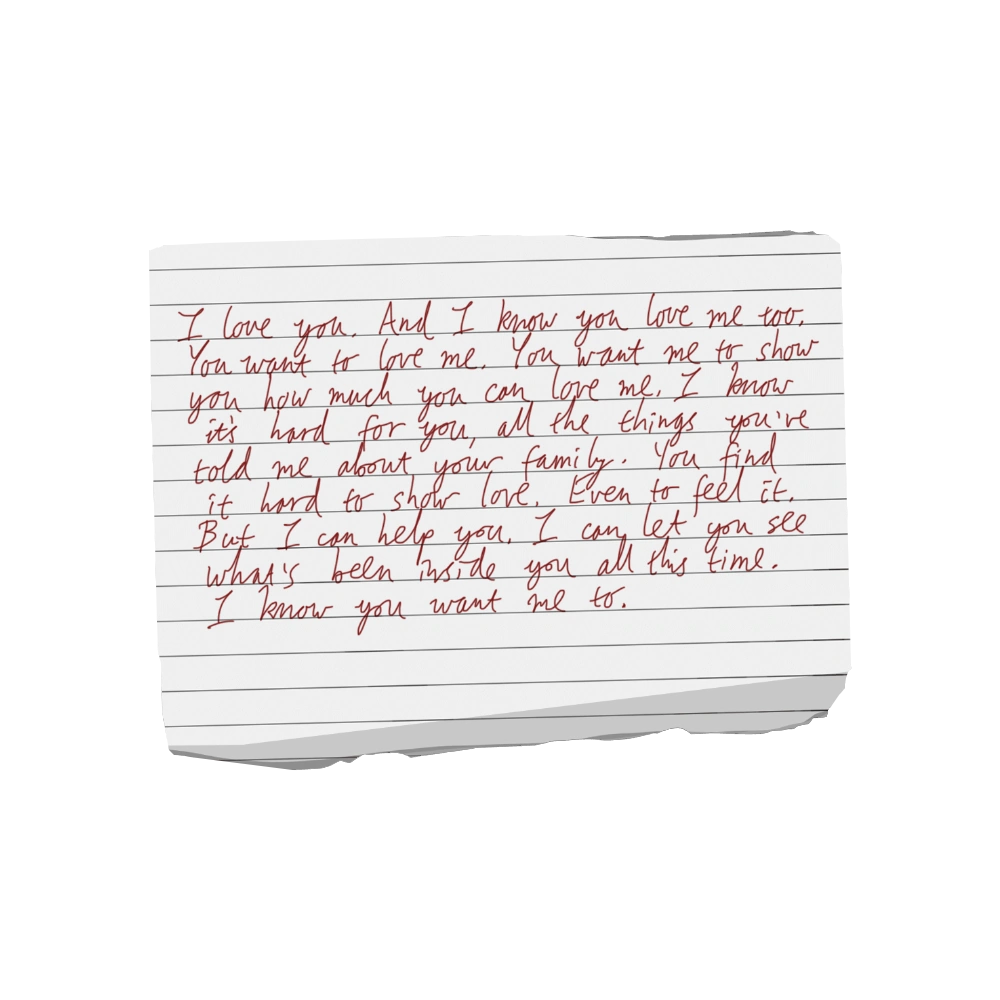 I love you. And I know you love me too.
You want to love me. You want me to show
you how much you can love me. I know
it's hard for you, all the things you've
told me about your family. You find
it hard to show love. Even to feel it.
But I can help you. I can let you see
what's been inside you all this time.
I know you want me to.